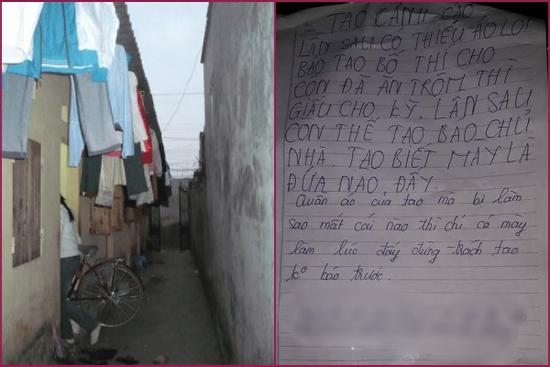 TAO CẢNH CÁO
LẦN SAU CÓ THIẾU ÁO LÓT
BẢO TAO BỘ THÍ CHO
CÒN ĐÃ ĂN TRỘM THÌ
GIẤU CHO KỸ. LẦN SAU
CÒN THẾ TAO BÁO CHỦ
NHÀ. TAO BIẾT MÀY LÀ
ĐỨA NÀO ĐẤY.
Quần áo của tao mà bị làm
sao mất cái nào thì chỉ có mày
làm lúc đấy đừng trách tao
ko báo trước.